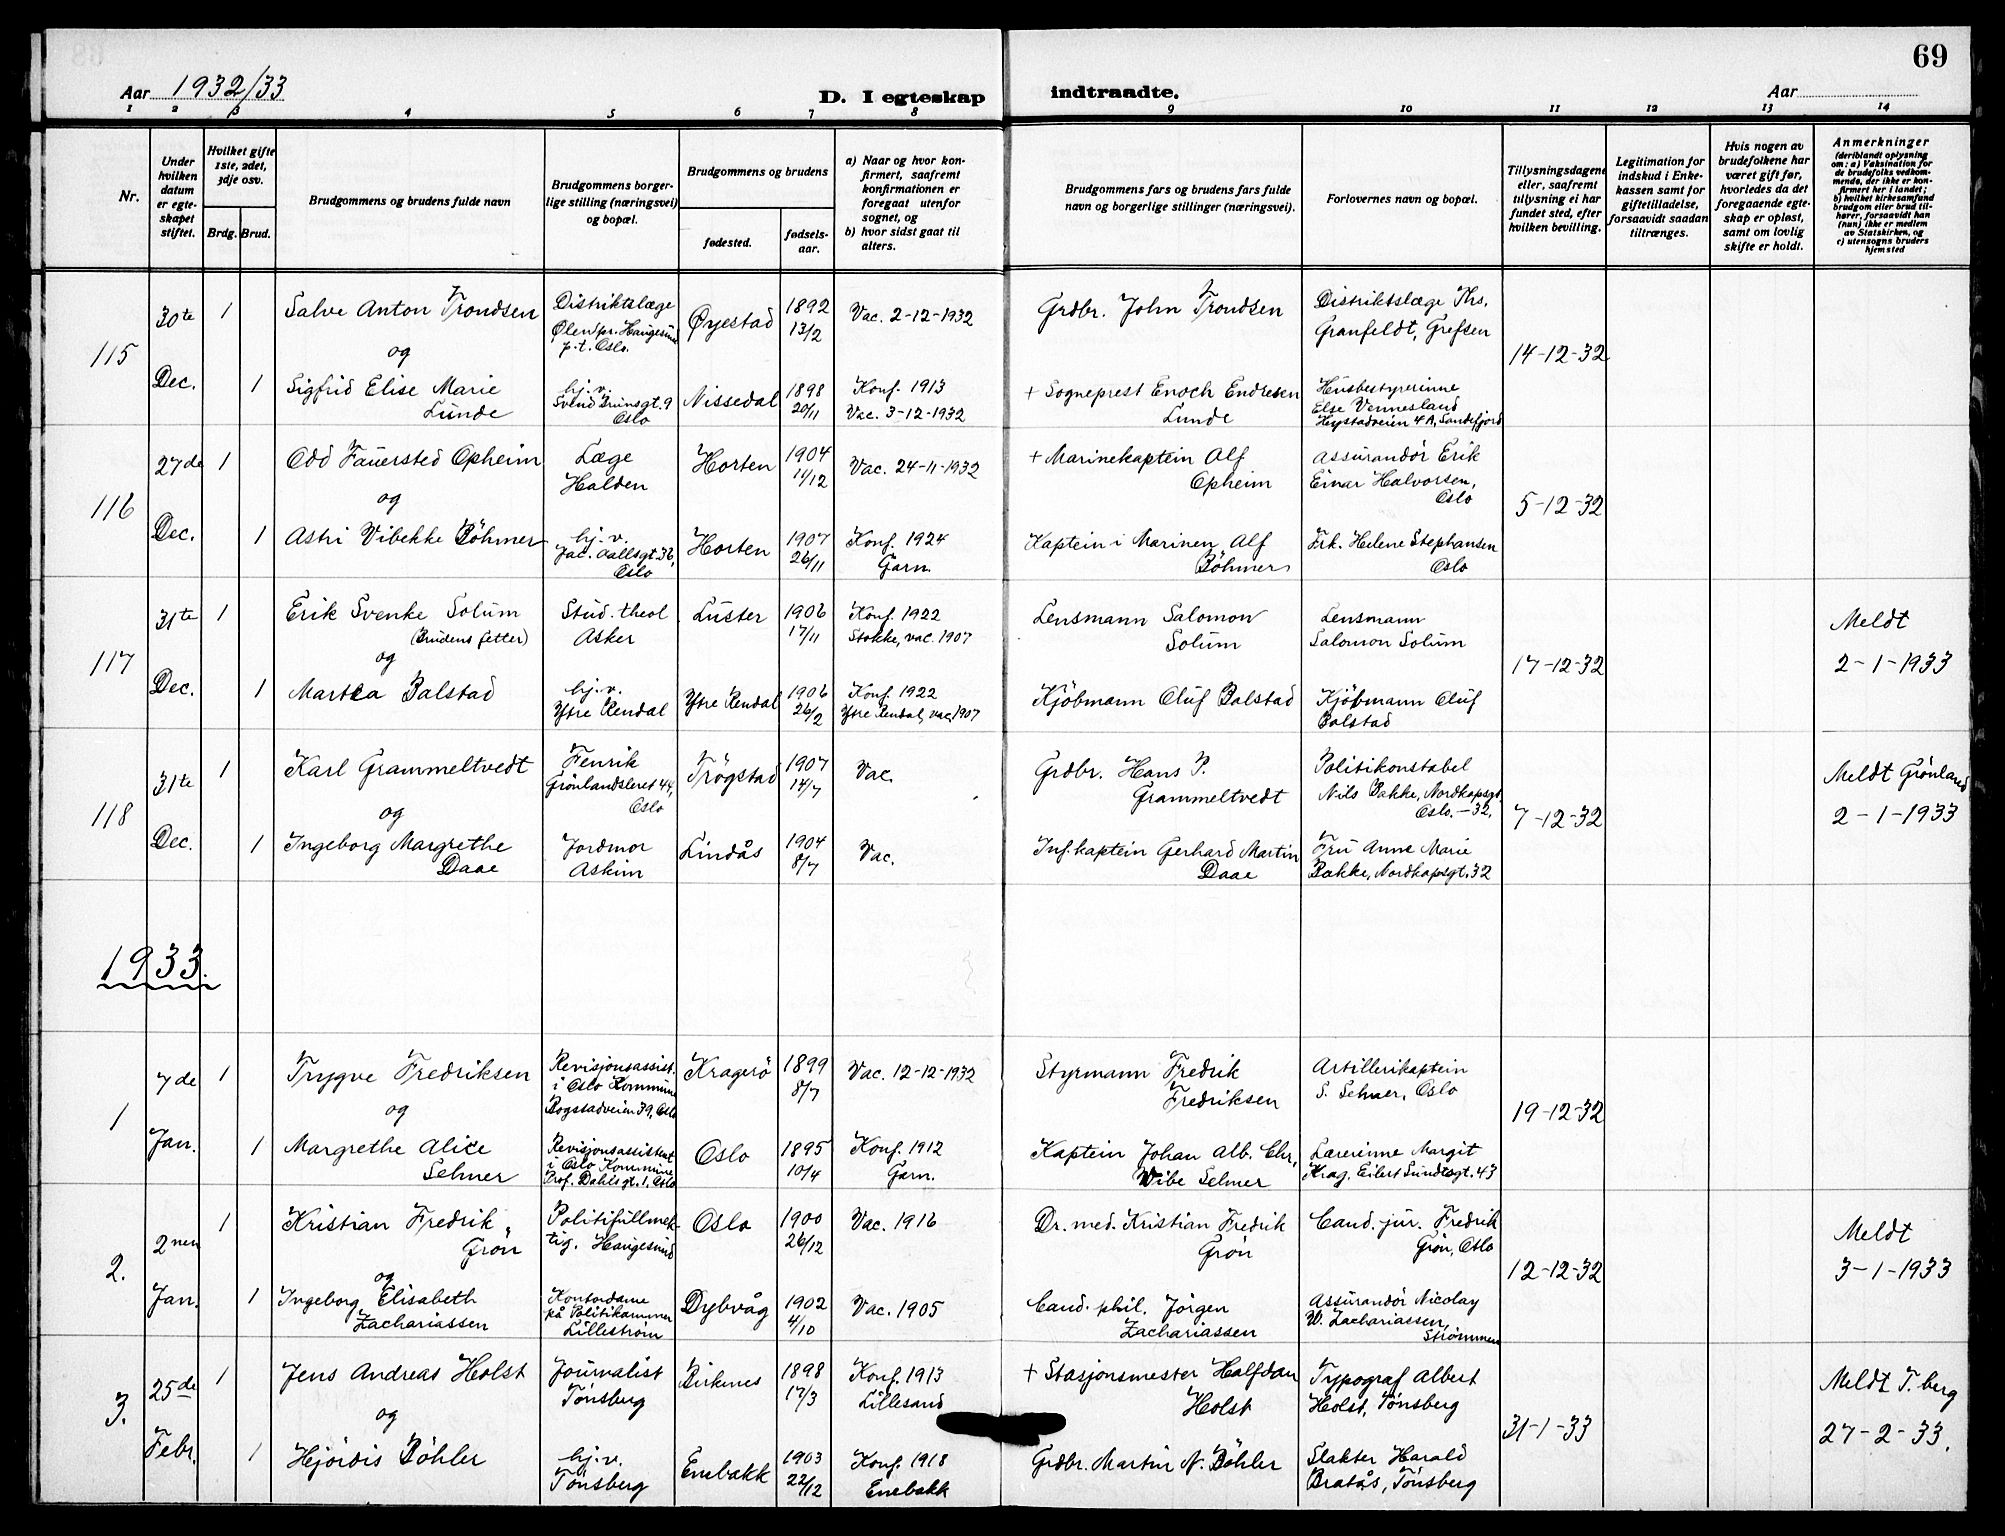 69
Aar 1932/33
D. I egteskap
indtraadte.
Aar
1 2 3 4 5 6 7 8 9 10 11 12 13 14
Nr.
Under hvilken datum er egteskapet stiftet.
Hvilket gifte 1ste, 2det, 3dje osv.
Brdg. Brud.
Brudgommens og brudens fulde navn
Brudgommens borgerlige stilling (næringsvei) og bopæl.
Brudgommens og brudens
fødested.
fødselsaar.
a) Naar og hvor konfirmert, saafremt konfirmationen er foregaat utenfor sognet, og
b) hvor sidst gaat til alters.
Brudgommens fars og brudens fars fulde navn og borgerlige stillinger (næringsvei).
Forlovernes navn og bopæl.
Tillysningsdagene eller, saafremt tillysning ei har fundet sted, efter hvilken bevilling.
Legitimation for indskud i Enkekassen samt for giftetilladelse, forsaavidt saadan tiltrænges.
Hvis nogen av brudefolkene har været gift før, hvorledes da det foregaaende egteskap er opløst, samt om lovlig skifte er holdt.
Anmerkninger
(deriblandt oplysning om: a) Vaksination for de brudefolks vedkommende, der ikke er konfirmert her i landet; b) hvilket kirkesamfund brudgom eller brud tilhører, forsaavidt han (hun) ikke er medlem av Statskirken, og c) utensogns bruders hjemsted
115
30te Dec.
1
Salve Anton Trondsen
Distriktslæge
Ølen pr. Haugesund
p.t. Oslo.
Øyestad
1892
13/2
Vac. 2-12-1932
Grdbr. John Trondsen
Distriktslæge Ths.
Granfeldt, Grefsen
14-12-32
og
1
Sigfrid Elise Marie
Lunde
hj.v.
Svend Brunsgt. 9
Oslo
Nissedal
1898
20/11
Konf. 1913
Vac. 3-12-1932
+ Sogneprest Enoch Endresen
Lunde
Husbestyrerinne
Else Vennesland
Hystadveien 4A, Sandefjord
116
27de Dec.
1
Odd Fauersted Opheim
Læge
Halden
Horten
1904
11/12
Vac. 24-11-1932
+ Marinekaptein Alf
Opheim
Assurandör Erik
Einar Halvorsen,
Oslo
5-12-32
og
1
Astri Vibekke Böhmer
hj.v.
Jac. Aallsgt. 36,
Oslo
Horten
1907
26/11
Konf. 1924
Garn.
Kaptein i Marinen Alf
Böhmer
Frk. Helene Stephansen
Oslo
117
31te Dec.
1
Erik Svenke Solum
(Brudens fetter)
Stud. theol
Asker
Luster
1906
17/11
Konf. 1922
Stokke, vac. 1907
Lensmann Salomon
Solum
Lensmann
Salomon Solum
17-12-32
Meldt
2-1-1933
og
1
Martha Balstad
hj.v.
Ytre Rendal
Ytre Rendal
1906
26/2
Konf. 1922
Ytre Rendal, vac. 1907
Kjöbmann Oluf Balstad
Kjöbmann Oluf
Balstad
118
31te Dec.
1
Karl Grammeltvedt
Fenrik
Grönlandsleret 44,
Oslo
Trögstad
1907
14/7
Vac.
Grdbr. Hans P.
Grammeltvedt
Politikonstabel
Nils Bakke, Nordkapsgt.
Oslo. -32.
7-12-32
Meldt Grönland
2-1-1933
og
1
Ingeborg Margrethe
Daae
Jordmor
Askim
Lindås
1904
8/7
Vac.
Inf.kaptein Gerhard Martin
Daae
Fru Anne Marie
Bakke, Nordkapsgt. 32
1933.
1
7de Jan.
1
Trygve Fredriksen
Revisjonsassist.
i Oslo Kommune
Bogstadveien 39, Oslo
Kragerö
1899
8/7
Vac. 12-12-1932
Styrmann Fredrik
Fredriksen
Artillerikaptein
S. Selmer, Oslo
19-12-32
og
1
Margrethe Alice
Selmer
Revisjonsassistent
i Oslo Kommune
Prof. Dahlsgt. 1, Oslo
Oslo
1895
10/4
Konf. 1912
Garn.
Kaptein Johan Alb. Chr.
Wibe Selmer
Lærerinne Margit
Krag, Eilert Sundtsgt. 43
2.
2nen Jan.
1
Kristian Fredrik
Grön
Politifullmek-
tig. Haugesund
Oslo
1900
26/12
Vac. 1916
Dr. med. Kristian Fredrik
Grön
Cand. jur. Fredrik
Grön, Oslo
12-12-32
Meldt
3-1-1933
og
1
Ingeborg Elisabeth
Zachariassen
Kontordame
på Politikammer
Lilleström
Dybvåg
1902
4/10
Vac. 1905
Cand. phil. Jörgen
Zachariassen
Assurandör Nicolay
W. Zachariassen,
Strömmen
3.
25de Febr.
1
Jens Andreas Holst
Journalist
Tönsberg
Birkenes
1898
17/3
Konf. 1913
Lillesand
+ Stasjonsmester Halfdan
Holst
Typograf Albert
Holst, Tönsberg
31-1-33
Meldt T.berg
27-2-33.
og
1
Hjördis Böhler
hj.v.
Tönsberg
Enebakk
1903
22/12
Konf. 1918
Enebakk
Grdbr. Martin N. Böhler
Slakter Harald
Bratås, Tönsberg